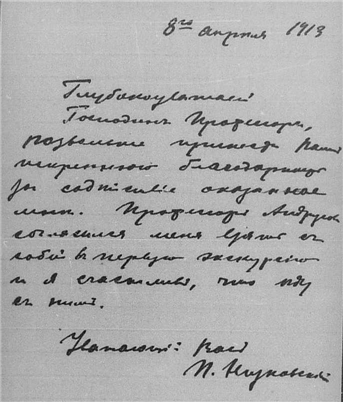 8го апреля 1913
Глубокоуважаемый
Господинъ Профессоръ,
позвольте принести Вамъ
искреннюю благодарность
за содѣйствіе оказанное
мнѣ. Профессоръ Андрусовъ
согласился меня взять съ
собой въ первую экскурсію
и я счастливъ, что иду
съ нимъ.
Уважающій Васъ
П.